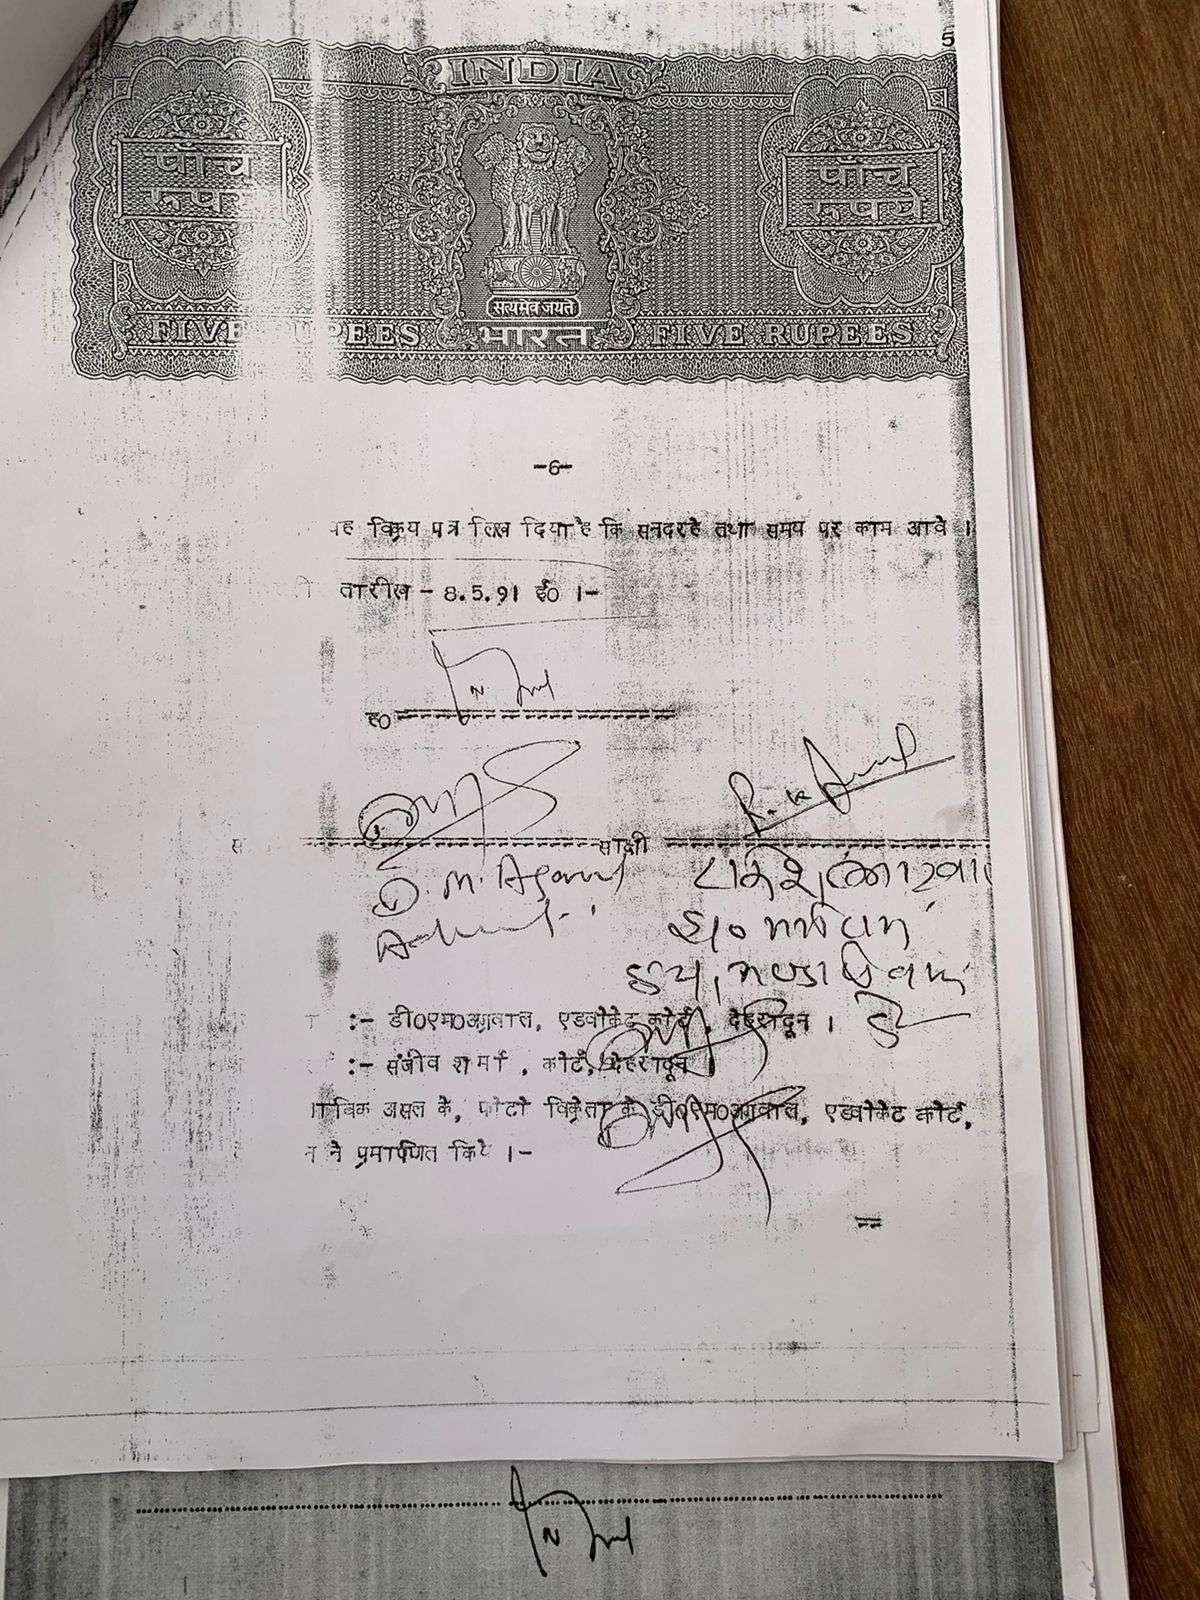 5
INDIA
पाँच
रूपये
पाँच
रूपये
सत्यमेव जयते
FIVE RUPEES
भारत
FIVE RUPEES
-6-
यह विक्रय पत्र लिख दिया है कि सनदरहे तथा समय पर काम आवे ।
तारीख - 8.5.91 ई0 ।-
ह0
साक्षी
R. K.
D. M. Agarwal
:- डी0एम0अग्रवाल, एडवोकेट कोर्ट, देहरादून ।
:- संजीव शर्मा , कोर्ट, देहरादून
असल के, फोटो विक्रेता के डी0एम0अग्रवाल, एडवोकेट कोर्ट,
ने प्रमाणित किये ।-
==